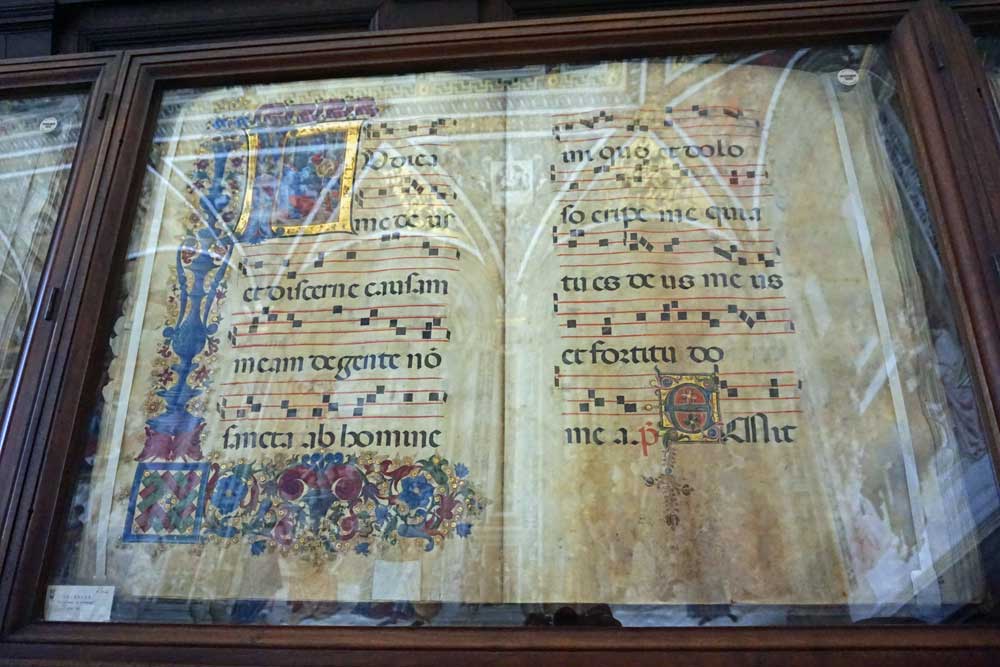 Iudica
me de us
et discerne causam
meam de gente nō
sancta ab homine
ini quo et dolo
so eripe me quia
tu es de us me us
et fortitu do
me a. p̄ Emit